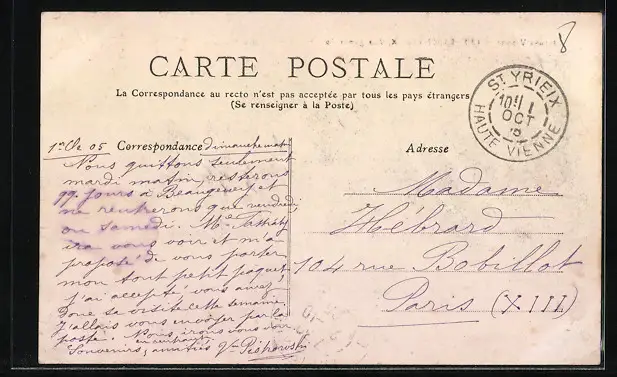 8
CARTE POSTALE
La Correspondance au recto n'est pas acceptée par tous les pays étrangers
(Se renseigner à la Poste)
ST YRIEIX
OCT
HAUTE VIENNE
Correspondance
Adresse
05 Dimanche
Nous quittons seulement
mardi matin, resterons
qq. jours à et
ne rentrerons que vendredi
ou samedi. Me
ira vous voir et m'a
proposé de vous porter
mon tout petit paquet,
j'ai accepté vous aurez
donc sa visite cette semaine
J'allais vous envoyer par la
poste. Nous irons vous voir
en
Souvenirs, amitiés
Madame
Hébrard
104 rue Bobillot
Paris (XIII)